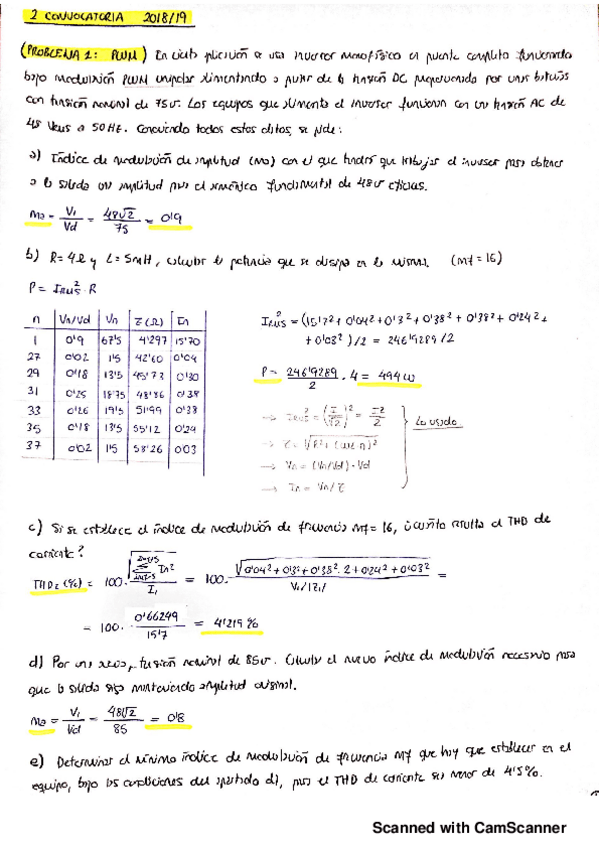 2 CONVOCATORIA 2018/19
(PROBLEMA 1: PWM) En cierta aplicación se usa inversor monofásico en puente completo funcionando
bajo modulación PWM unipolar alimentando a partir de la tensión DC proporcionada por unas baterías
con tensión nominal de 75v. Los equipos que alimenta el inversor funcionan con una tensión AC de
48 Vrms a 50Hz. Conociendo todos estos datos, se pide:
a) Índice de modulación de amplitud (ma) con el que tendrá que trabajar el inversor para obtener
a la salida una amplitud para el armónico fundamental de 48v eficaces.
ma = V1/Vd = 48√2/75 = 0'9
b) R=4Ω y L=5mH, calcular la potencia que se disipa en la misma. (mf=16)
P = IRMS² · R
n Vn/Vd Vn Z(Ω) In
1 0'9 67'5 4'297 15'70
27 0'02 1'5 42'60 0'04
29 0'18 13'5 45'73 0'30
31 0'25 18'75 48'86 0'38
33 0'26 19'5 51'99 0'38
35 0'18 13'5 55'12 0'24
37 0'02 1'5 58'26 0'03
IRMS² = (15'7² + 0'04² + 0'3² + 0'38² + 0'38² + 0'24² +
+ 0'03²)/2 = 246'9289/2
P = 246'9289/2 · 4 = 494 w
→ IRMS² = (I/√2)² = I²/2
→ Z = √R² + (ωL·n)²
→ Vn = (Vn/Vd) · Vd
→ In = Vn/Z
Lo usado
c) Si se establece el índice de modulación de frecuencia mf = 16, ¿cuánto resulta el THD de
corriente?
THDI (%) = 100 · √Σ In² / I1 = 100 · √0'04² + 0'3² + 0'38² · 2 + 0'24² + 0'03² / V1/|Z1| =
= 100 · 0'66249/15'7 = 4'219 %
d) Por una tensión nominal de 85v. Calcular el nuevo índice de modulación necesario para
que la salida siga manteniendo amplitud original.
ma = V1/Vd = 48√2/85 = 0'8
e) Determinar el mínimo índice de modulación de frecuencia mf que hay que establecer en el
equipo, bajo las condiciones del apartado d), para el THD de corriente sea menor de 4'5%.
Scanned with CamScanner